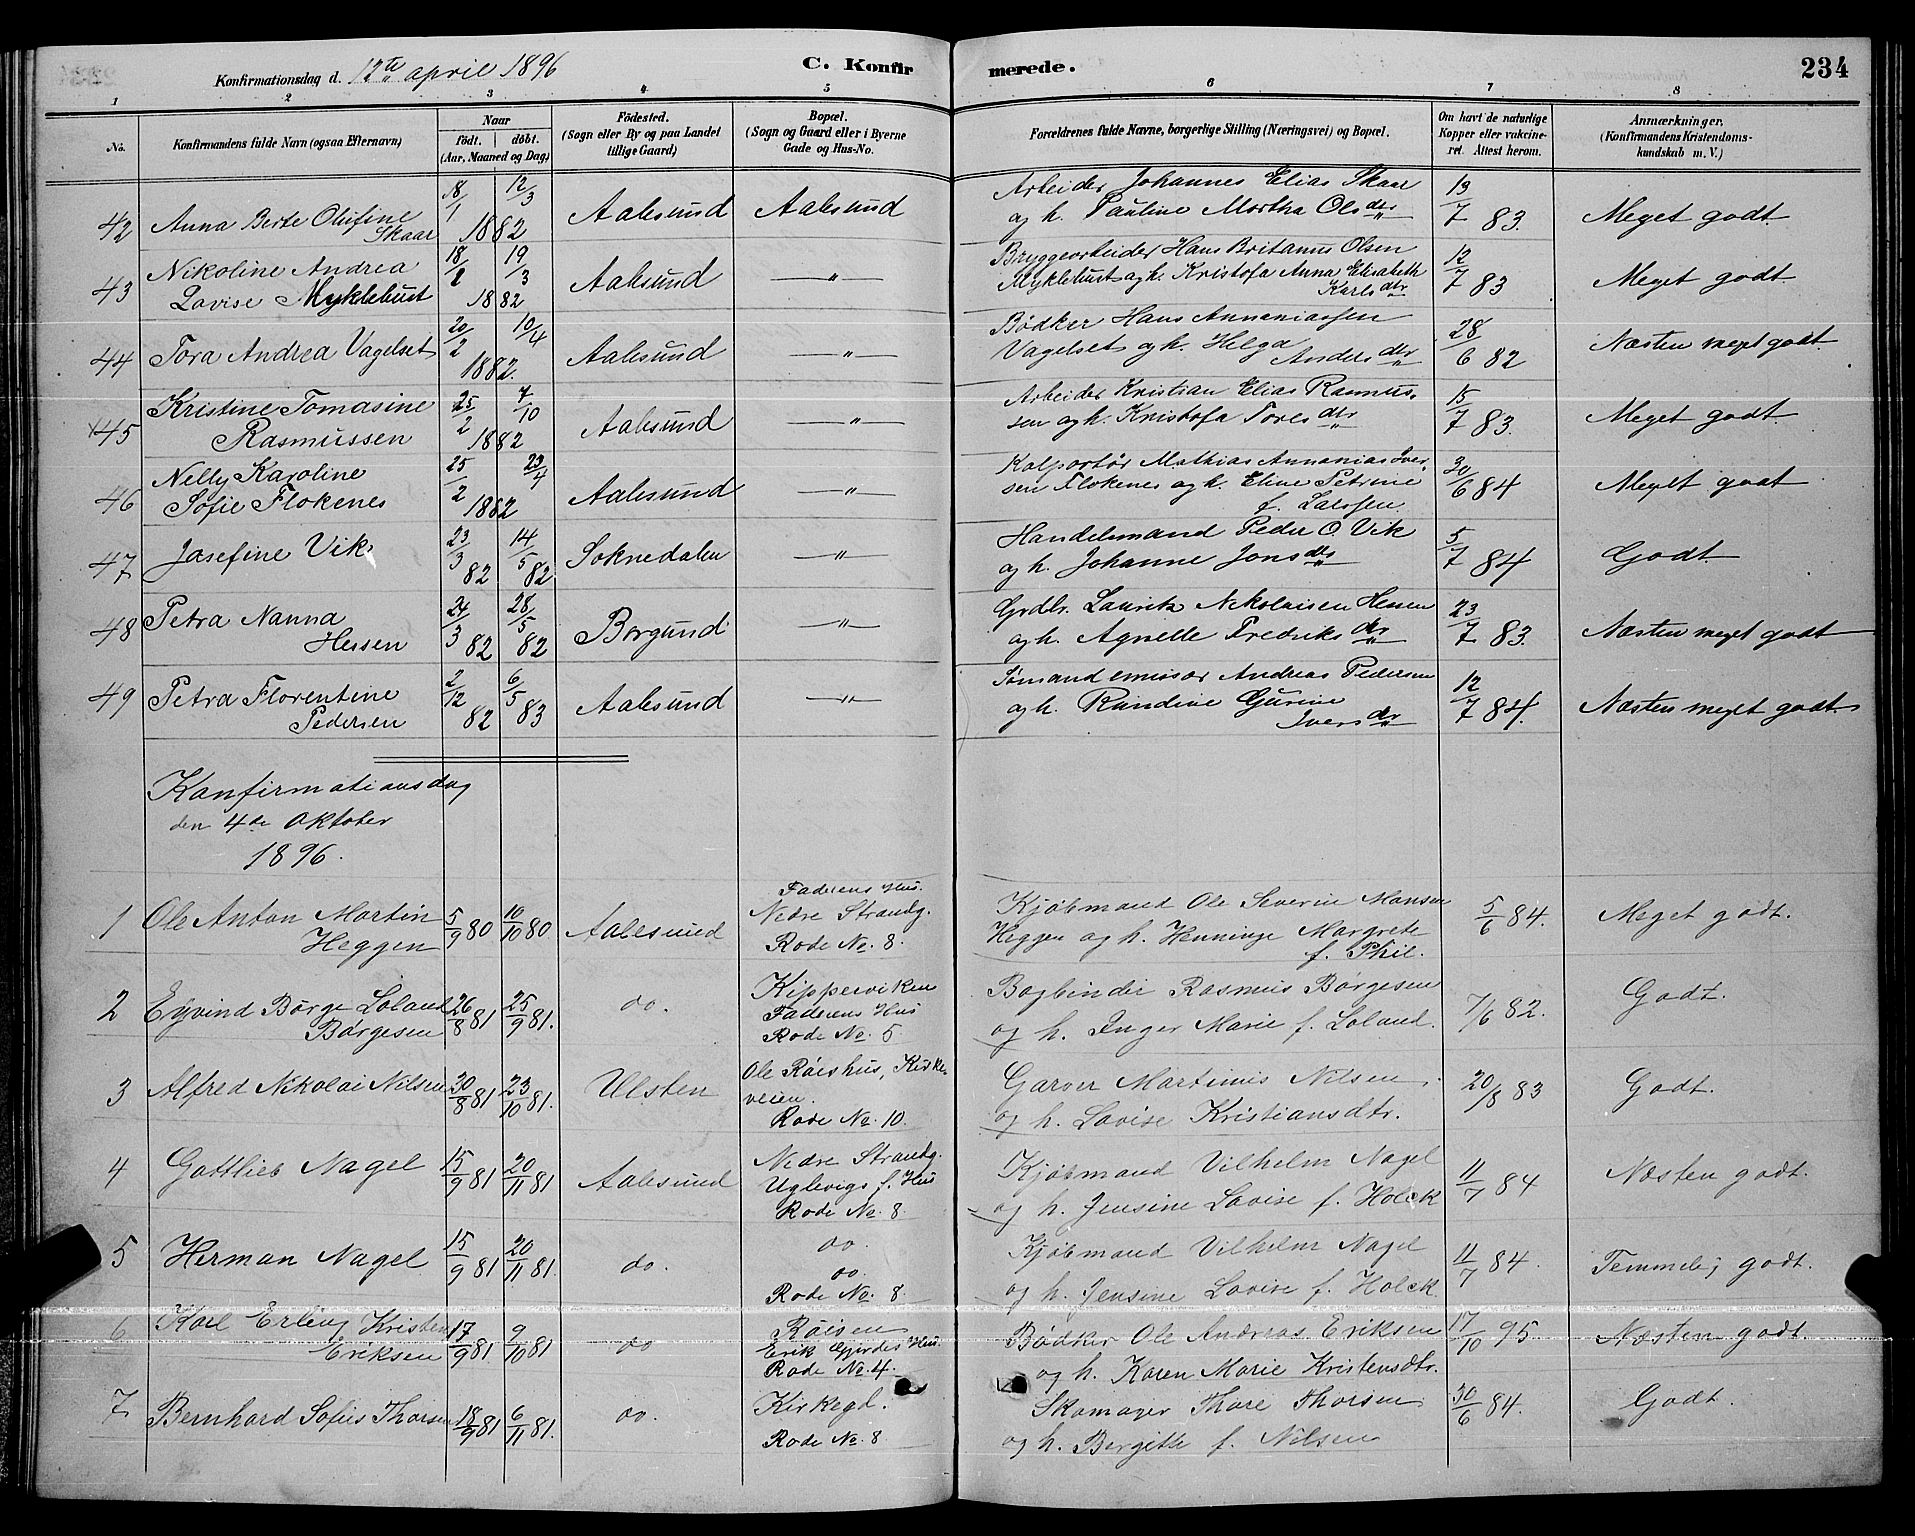 Konfirmationsdag d. 12te april 1896
C. Konfirmerede.
234
1 2 3 4 5 6 7 8
No.
Konfirmandens fulde Navn (ogsaa Efternavn)
Naar
født. døbt.
(Aar, Maaned og Dag)
Fødested.
(Sogn eller By og paa Landet
tillige Gaard)
Bopæl.
(Sogn og Gaard eller i Byerne
Gade og Hus-No.
Forældrenes fulde Navne, borgerlige Stilling (Næringsvei) og Bopæl.
Om havt de naturlige
Kopper eller vakcine-
ret. Attest herom.
Anmærkninger.
(Konfirmandens Kristendoms-
kundskab m. V.)
42 Anna Berte Olufine Skaar 18/1 12/3 1882 Aalesund Aalesund
Arbeider Johannes Elias Skaar
og h. Pauline Martha Olsdtr 19/7 83. Meget godt.
43 Nikoline Andrea
Lovise Myklebust 18/1 19/3 1882 Aalesund —"—
Bryggearbeider Hans Britanus Olsen
Myklebust og h. Kristofa Anna Elisabeth
Karlsdtr 12/7 83 Meget godt.
44 Tora Andrea Vagelset 20/2 10/4 1882. Aalesund —"—
Bødker Hans Annaniassen
Vagelset og h. Helga
Andersdtr 28/6 82 Næsten meget godt.
45 Kristine Tomasine
Rasmussen 25/2 7/10 1882 Aalesund —"—
Arbeider Kristian Elias Rasmus-
sen og h. Kristofa Toresdtr 15/7 83. Meget godt.
46 Nelly Karoline
Sofie Flokenes 25/2 23/4 1882 Aalesund —"—
Kolportør Mathias Annanias Iver-
sen Flokenes og h. Eline Petrine
f. Larssen. 30/6 84 Meget godt
47 Josefine Vik 23/3 82 14/5 82 Soknedalen —"—
Handelsmand Peder O. Vik
og h. Johanne Jonsdtr 5/7 84 Godt.
48 Petra Nanna
Hessen 24/3 82 28/5 82 Borgund —"—
Grdbr. Laurits Nikolaisen Hessen
og h. Agnette Fredriksdtr 23/7 83. Næsten meget godt
49 Petra Florentine
Pedersen 2/12 82 6/5 83 Aalesund —"—
Sømand emissær Andreas Pedersen
og h. Randine Gurine
Iversdtr 12/7 84. Næsten meget godt.
Konfirmationsdag
den 4de Oktober
1896.
1 Ole Anton Martin
Heggen 5/9 80 10/10 80. Aalesund
Faderens Hus.
Nedre Strandg.
Rode No. 8.
Kjøbmand Ole Severin Hansen
Heggen og h. Henninge Margrete
f. Phil. 5/6 84. Meget godt.
2 Eyvind Børge Loland
Børgesen 26/8 81 25/9 81. do.
Kipperviken
Faderens Hus
Rode No. 5
Bogbinder Rasmus Børgesen
og h. Inger Marie f. Loland. 7/6 82. Godt.
3 Alfred Nikolai Nilsen 30/8 81 23/10 81. Ulsten
Ole Røishus, Kirke-
veien.
Rode No. 10.
Garver Martinus Nilsen
og h. Lovise Kristiansdtr. 20/8 83 Godt.
4 Gottlieb Nagel 15/9 81 20/11 81 Aalesund
Nedre Strandg.
Uglevigs f. Hus
Rode No. 8.
Kjøbmand Vilhelm Nagel
og h. Jensine Lovise f. Holck 11/7 84 Næsten godt.
5 Herman Nagel 15/9 81 20/11 81. do.
do.
do.
Rode No. 8.
Kjøbmand Vilhelm Nagel
og h. Jensine Lovise f. Holck 11/7 84. Temmelig godt.
6 Karl Erling Kristen
Eriksen 17/9 81 9/10 81 do
Røisen
Erik Gjerdes Hus.
Rode No. 4.
Bødker Ole Andreas Eriksen
og h. Karen Marie Kristensdtr. 17/10 95 Næsten godt
7 Bernhard Sofus Thorsen 18/9 81 6/11 81. do.
Kirkegd.
Rode No. 8
Skomager Thore Thorsen
og h. Bergitte f. Nilsen 30/6 84. Godt.